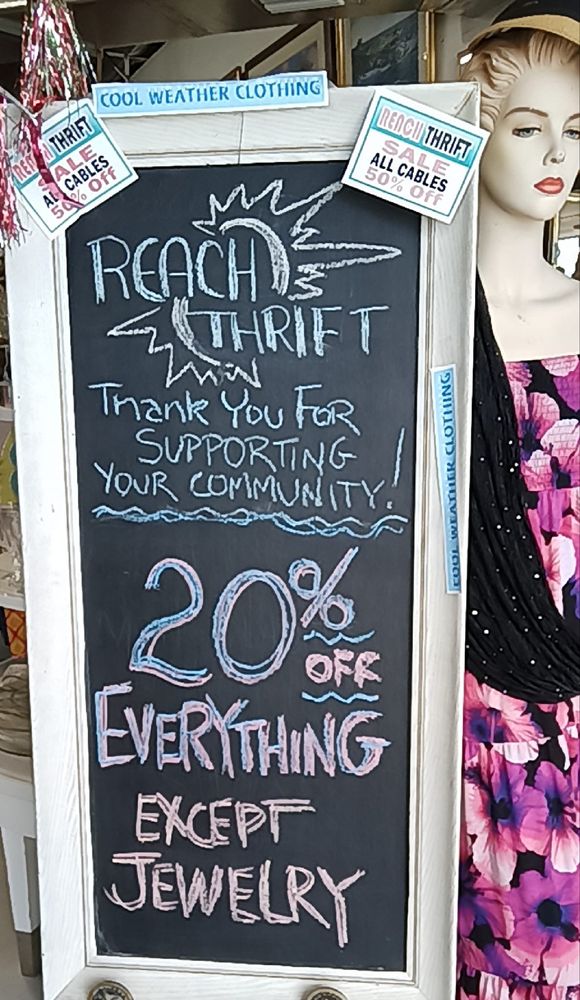 COOL WEATHER CLOTHING
REACH THRIFT
SALE
ALL CABLES
50% Off
REACH THRIFT
SALE
ALL CABLES
50% Off
REACH
THRIFT
Thank You For
SUPPORTING
YOUR COMMUNITY!
COOL WEATHER CLOTHING
20%
OFF
EVERYTHING
EXCEPT
JEWELRY